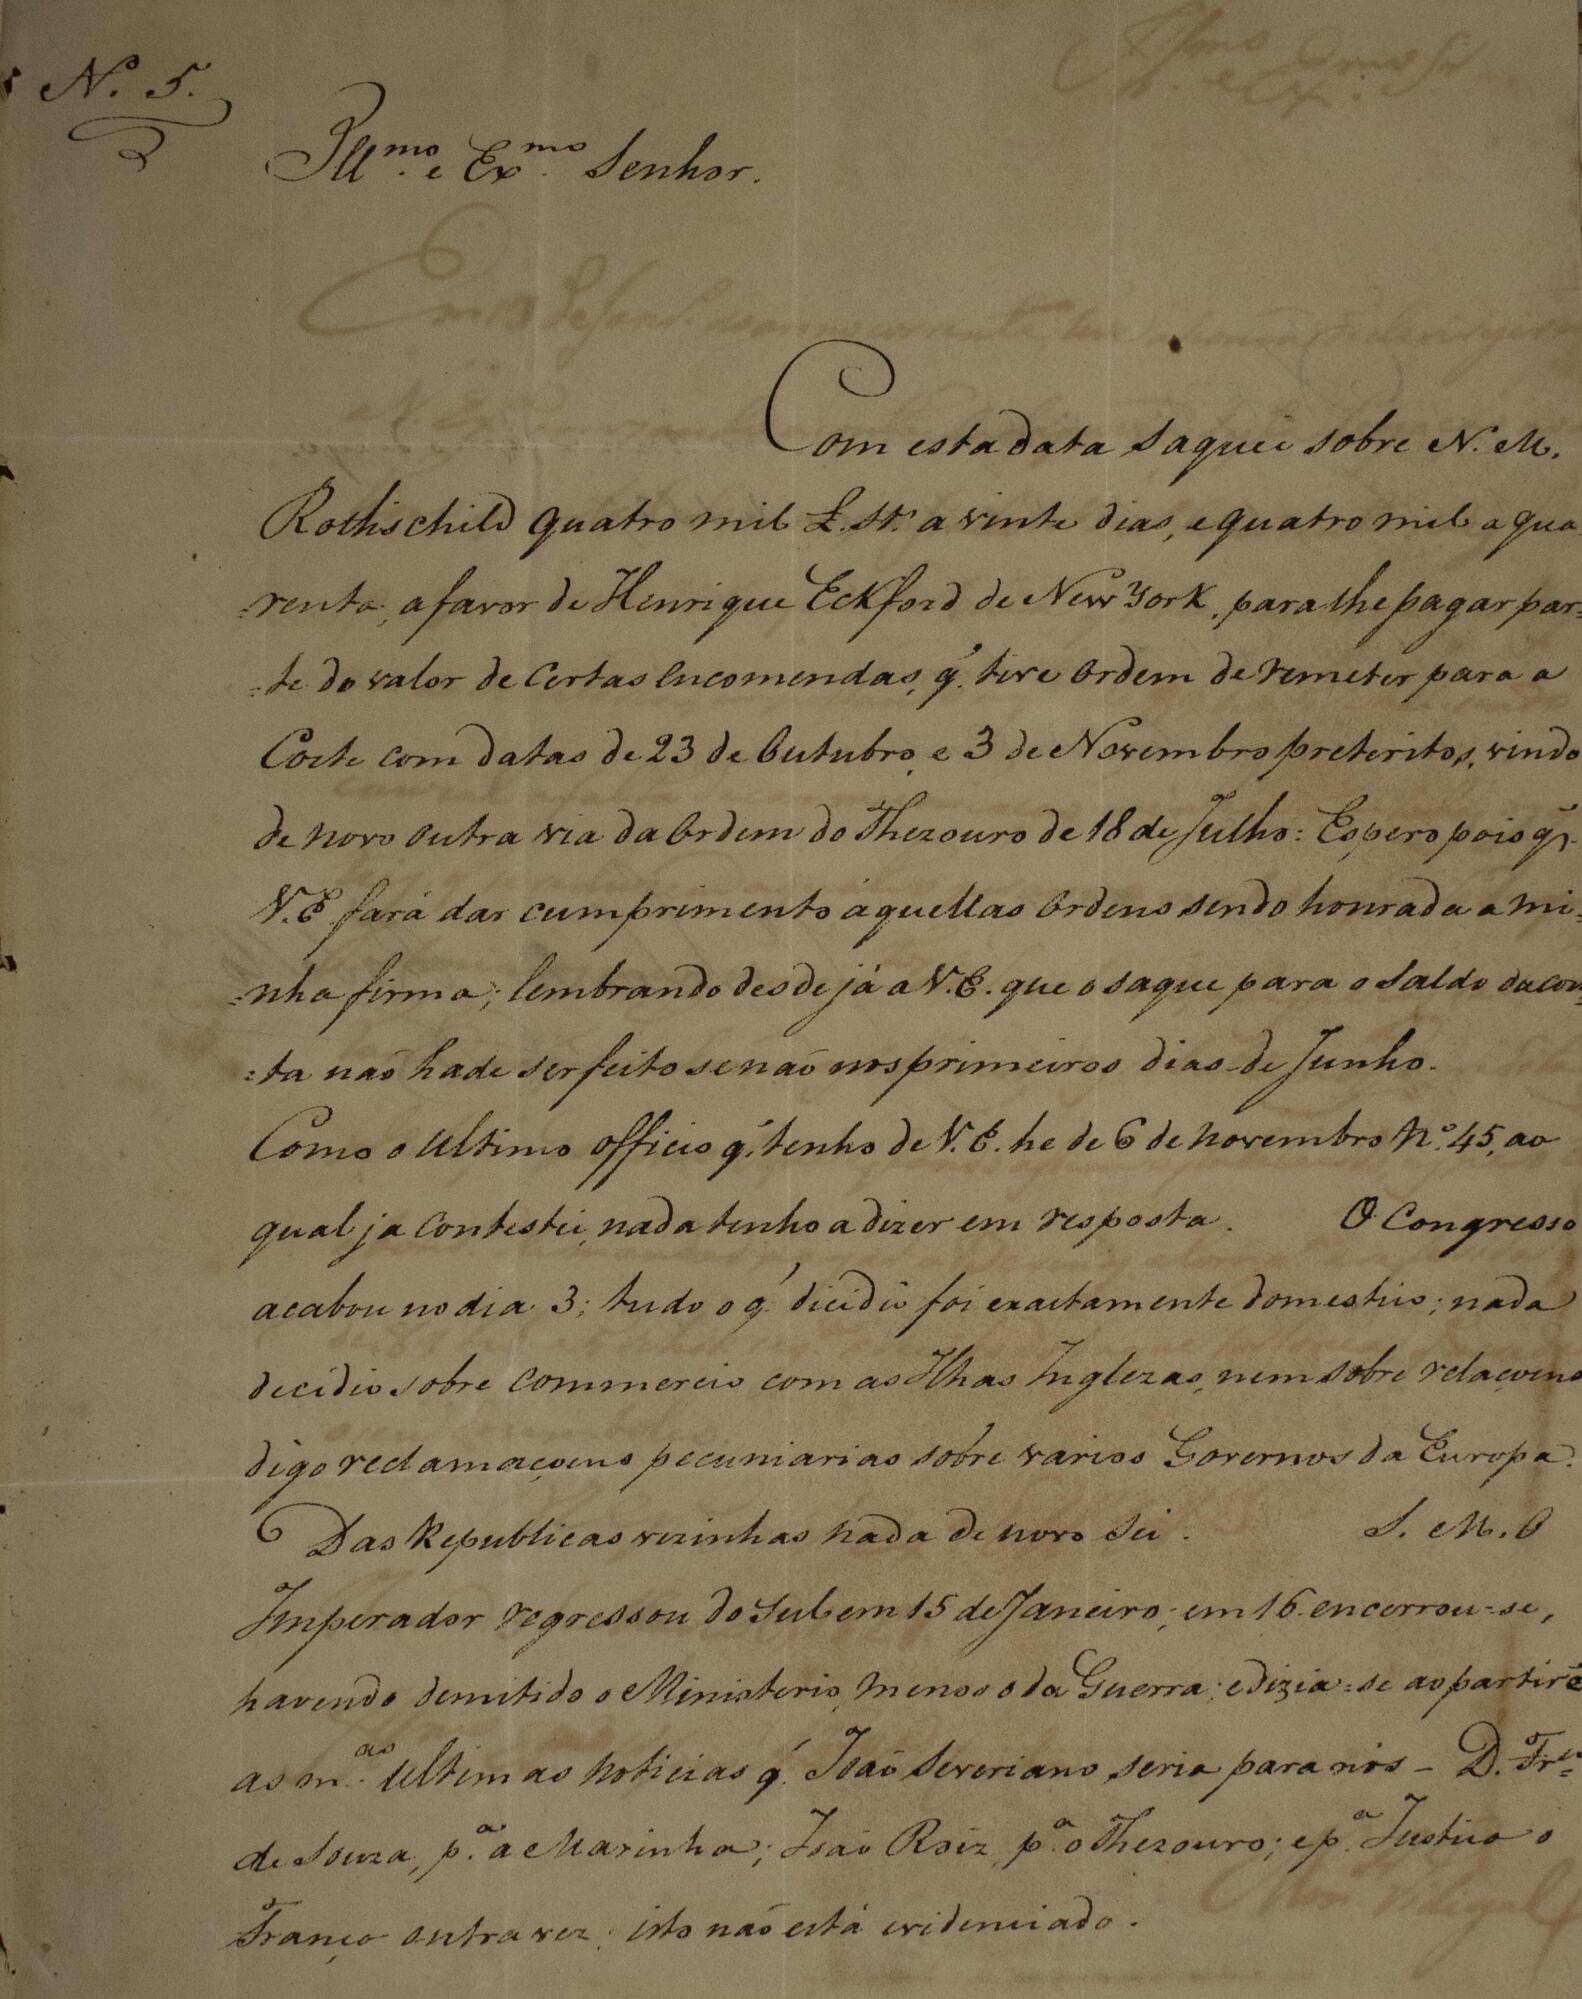 N.º 5.
Ill.mo e Ex.mo Senhor.
Com esta data saquei sobre N. M.
Rothischild quatro mil £. St.s a vinte dias, e quatro mil a qua
=renta, a favor de Henrique Eckford de New York, para lhe pagar par=
=te do valor de certas encomendas, q.' tive ordem de remeter para a
Corte com datas de 23 de Outubro, e 3 de Novembro preteritos, vindo
de novo outra via da ordem do Thezouro de 18 de Julho: Espero pois q.
V. E. fará dar cumprimento áquellas ordens sendo honrada a mi=
=nha firma; lembrando desde já a V. E. que o saque para o saldo da con=
=ta não hade ser feito senão nos primeiros dias de Junho.
Como o ultimo officio q.' tenho de V. E. he de 6 de novembro N.º 45, ao
qual ja contestei, nada tenho a dizer em resposta. O Congresso
acabou no dia 3; tudo o q.' dicidio foi exactamente domestico; nada
decidio sobre commercio com as Ilhas Inglezas, nem sobre relaçoens
digo reclamaçoens pecuniarias sobre varios Governos da Europa.
Das Republicas vezinhas nada de novo sei. S. M. O
Imperador regressou do Sul em 15 de Janeiro; em 16 encerrou=se,
havendo demitido o Ministerio, menos o da Guerra; e dizia=se ao partir é
as m.as ultimas noticias q.' João Severiano seria para nós - D. Fr.co=
de Souza, p.a a Marinha; João Roiz p.a o Thezouro; e p.a Justica o
França outra vez; isto não está evidenciado.